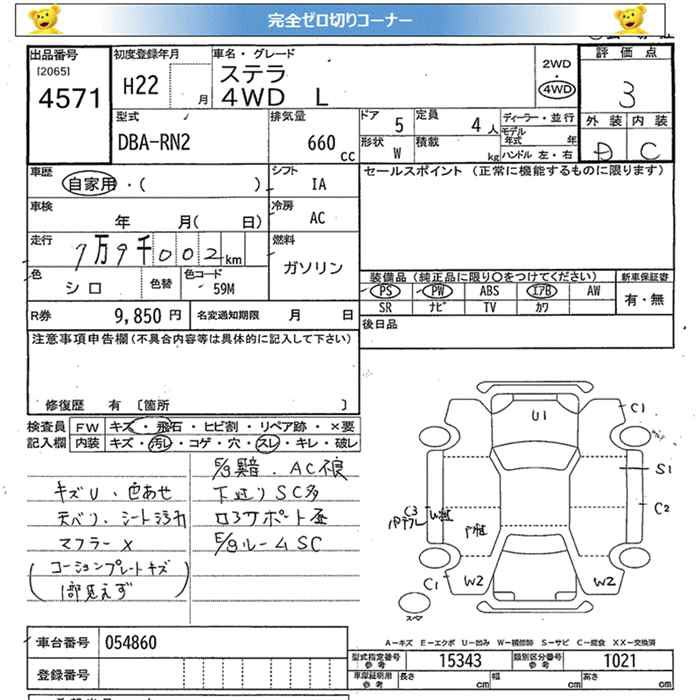 完全ゼロ切りコーナー
出品番号 初度登録年月 車名・グレード 評価点
[2065] ステラ 2WD
4571 H22 月 4WD L 4WD 3
型式 排気量 ドア 5 定員 4人 ディーラー・並行 外装 内装
DBA-RN2 660cc 形状 W 積載 kg モデル年式 年 ハンドル 左・右 D C
車歴 自家用・( ) シフト IA セールスポイント (正常に機能するものに限ります)
車検 年 月( 日) 冷房 AC
走行 7万9千002km 燃料 ガソリン
色 シロ 色替 色コード 59M 装備品 (純正品に限り○をつけてください) 新車保証書
PS PW ABS エアB AW 有・無
R券 9,850円 名変通知期限 月 日 SR ナビ TV カワ
注意事項申告欄(不具合内容等は具体的に記入して下さい) 後日品
修復歴 有 〔箇所 〕
検査員 FW キズ・飛石・ヒビ割・リペア跡・×要
記入欄 内装 キズ・汚レ・コゲ・穴・スレ・キレ・破レ
キズU・色あせ
天バリ、シート汚れ
マフラーX
(コーションプレートキズ
1部見えず)
AC不良
下廻りSC多
E/gルームSC
U1 C1
S1
C2
C3
C1 W2 W2
スペア
A−キズ E−エクボ U−凹み W−補修跡 S−サビ C−腐食 XX−交換済
車台番号 054860 型式指定番号 参考 15343 類別区分番号 参考 1021
登録番号 車庫証明用 参考 長さ cm 幅 cm 高さ cm